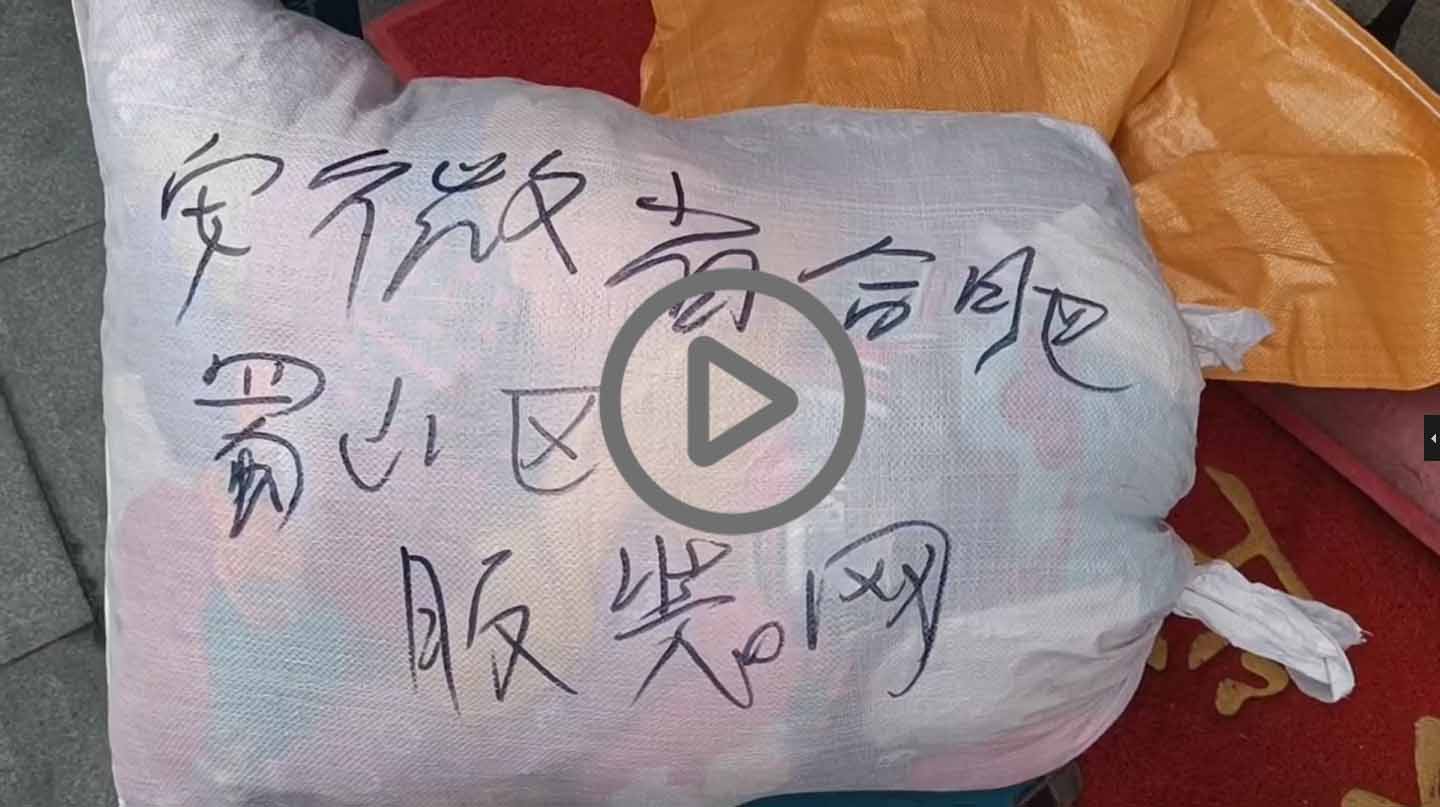 安徽省合肥
蜀山区
服装网